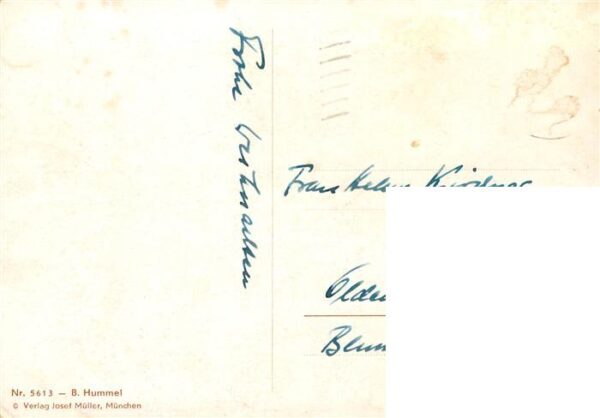 Frohe Weihnachten
Frau Helen
Olden
Blum
Nr. 5613 — B. Hummel
© Verlag Josef Müller, München